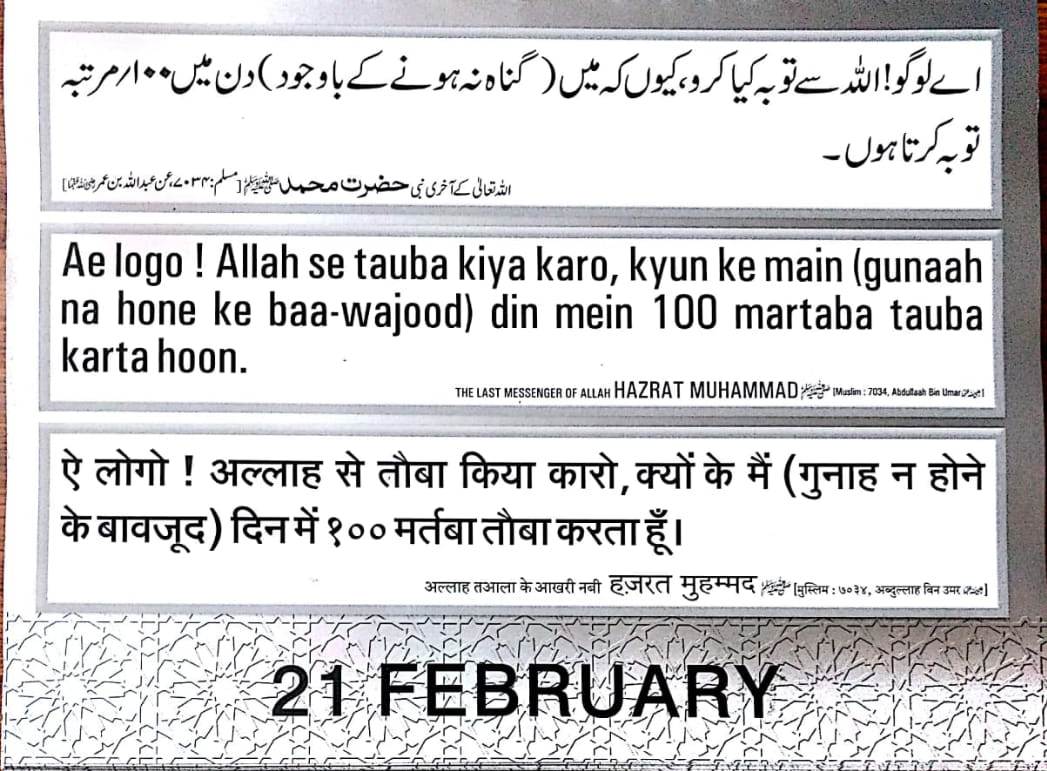 اے لوگو! اللہ سے توبہ کیا کرو، کیوں کہ میں (گناہ نہ ہونے کے باوجود) دن میں ۱۰۰/مرتبہ
توبہ کرتا ہوں۔
اللہ تعالیٰ کے آخری نبی حضرت محمد ﷺ [مسلم: ۷۰۳۴، عن عبداللہ بن عمر]
Ae logo ! Allah se tauba kiya karo, kyun ke main (gunaah
na hone ke baa-wajood) din mein 100 martaba tauba
karta hoon.
THE LAST MESSENGER OF ALLAH HAZRAT MUHAMMAD ﷺ [Muslim : 7034, Abdullaah Bin Umar]
ऐ लोगो ! अल्लाह से तौबा किया कारो, क्यों के मैं (गुनाह न होने
के बावजूद) दिन में १०० मर्तबा तौबा करता हूँ।
अल्लाह तआला के आखरी नबी हज़रत मुहम्मद ﷺ [मुस्लिम : ७०३४, अब्दुल्लाह बिन उमर]
21 FEBRUARY